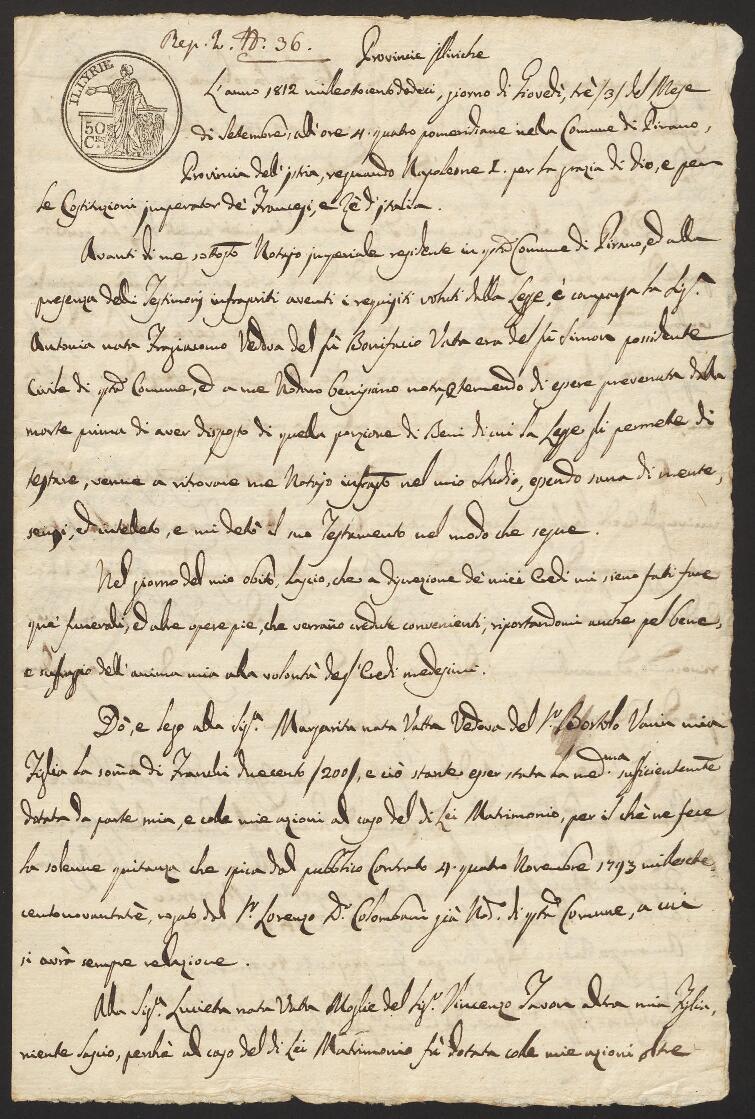 Rep. 2. N.º 36.
Provincie Illiriche
ILLYRIE
50
Ces
L'anno 1812 milleotocentododeci, giorno di Giovedì, trè /3/ del Mese
di Setembre, all'ore 4. quatro pomeridiane nella Comune di Pirano,
Provincia dell'Istria, regnando Napoleone I. per la grazia di dio, e per
le Costituzioni imperator de' Francesi, e Rè d'italia.
Avanti di me sottosto Notajo imperiale residente in qsta Comune di Pirano, ed alla
presenza delli Testimonj infrascriti aventi i requisiti voluti dalla Legge, è comparsa la Sig.ra
Antonia nata Fragiacomo Vedova del fù Bonifacio Vatta era del fù Simon possidente
Civile di qsta Comune, ed a me Nodaro benissimo nota, e temendo di essere prevenuta dalla
morte prima di aver disposto di quella porzione di Beni di cui la Legge gli permette di
testare, venne a ritrovare me Notajo infrasto nel mio Studio, essendo sana di mente,
sensi, ed inteleto, e mi detò il suo Testamento nel modo che segue.
Nel giorno del mio obito, lascio, che a discrezione de' miei Eredi mi sieno fati
que' funerali, ed altre opere pie, che verrano credute convenienti, riportandomi anche pel bene,
e sufragio dell'anima mia alla volontà degl'Eredi medesimi.
Dò, e lego alla Sig.ra Margarita nata Vatta Vedova del S.r Bortolo Vania mia
Figlia la soma di Franchi duecento /200/, e ciò stante esser stata la med.ma suficientemte
dotata da parte mia, e colle mie azioni al caso del di Lei Matrimonio, per il chè ne fece
la solenne quitanza che spica dal pubblico Contrato 4. quatro Novembre 1793 millesete
centonovantatrè, rogato dal S.r Lorenzo D.r Colombani già Nod.o di qsta Comune, a cui
si avrà sempre relazione.
Alla Sig.ra Lucieta nata Vatta Moglie del Sig.r Vincenzo Tavon altra mia Figlia,
niente lascio, perchè al caso del di Lei Matrimonio fù dotata colle mie azioni oltre